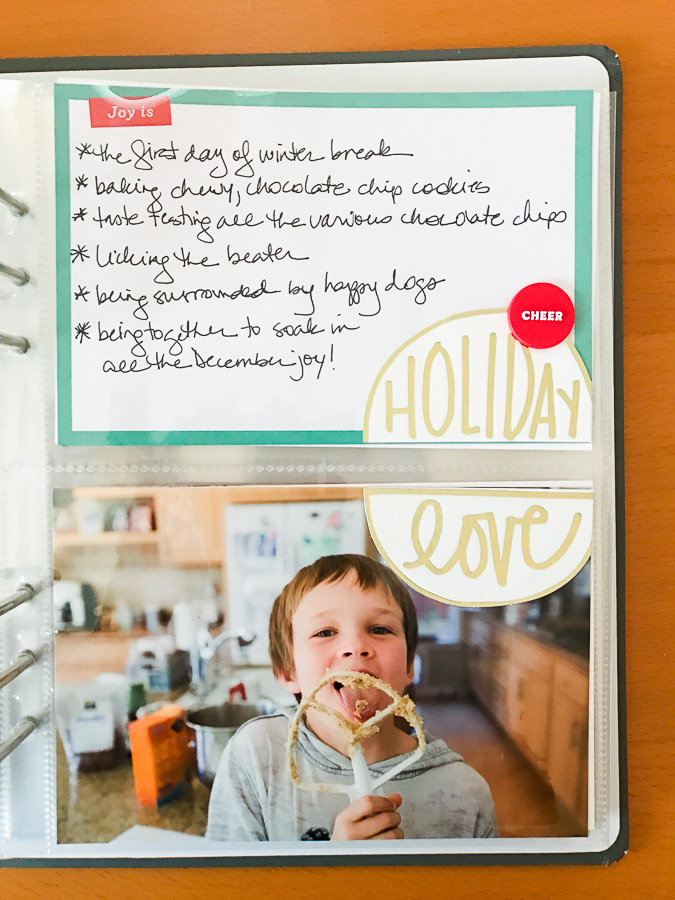 Joy is
*the first day of winter break
*baking chewy, chocolate chip cookies
*taste testing all the various chocolate chips
*licking the beater
*being surrounded by happy dogs
*being together to soak in
all the December joy!
CHEER
HOLIDAY
love